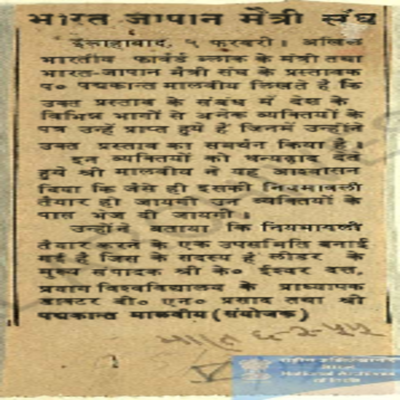 भारत जापान मैत्री संघ
इलाहाबाद, ५ फरवरी। अखिल
भारतीय फार्वर्ड ब्लाक के मंत्री तथा
भारत-जापान मैत्री संघ के प्रस्तावक
प० पद्मकान्त मालवीय लिखते हैं कि
उक्त प्रस्ताव के संबंध में देश के
विभिन्न भागों से अनेक व्यक्तियों के
पत्र उन्हें प्राप्त हुये हैं जिनमें उन्होंने
उक्त प्रस्ताव का समर्थन किया है।
इन व्यक्तियों को धन्यवाद देते
हुये श्री मालवीय ने यह आश्वासन
दिया कि जैसे ही इसकी नियमावली
तैयार हो जायगी उन व्यक्तियों के
पास भेज दी जायगी।
उन्होंने बताया कि नियमावली
तैयार करने के एक उपसमिति बनाई
गई है जिस के सदस्य हैं लीडर के
मुख्य संपादक श्री के० ईश्वर दत्त,
प्रयाग विश्वविद्यालय के प्राध्यापक
डाक्टर बी० एन० प्रसाद तथा श्री
पद्मकान्त मालवीय (संयोजक)
भारत ६-२-५५
राष्ट्रीय अभिलेखागार
भारत
National Archives